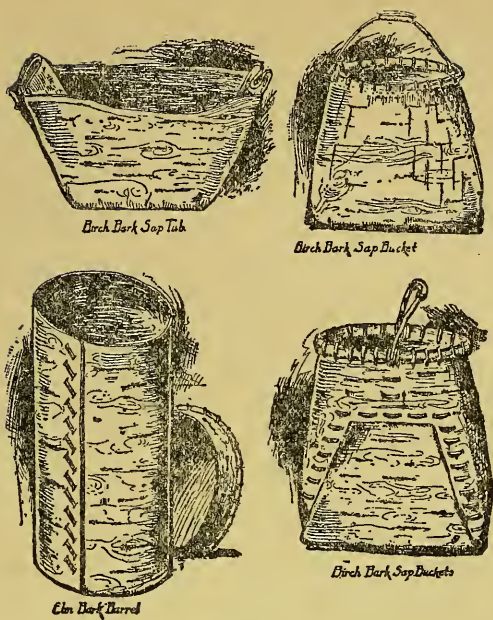 Birch Bark Sap Tub.
Birch Bark Sap Bucket
Elm Bark Barrel
Birch Bark Sap Buckets